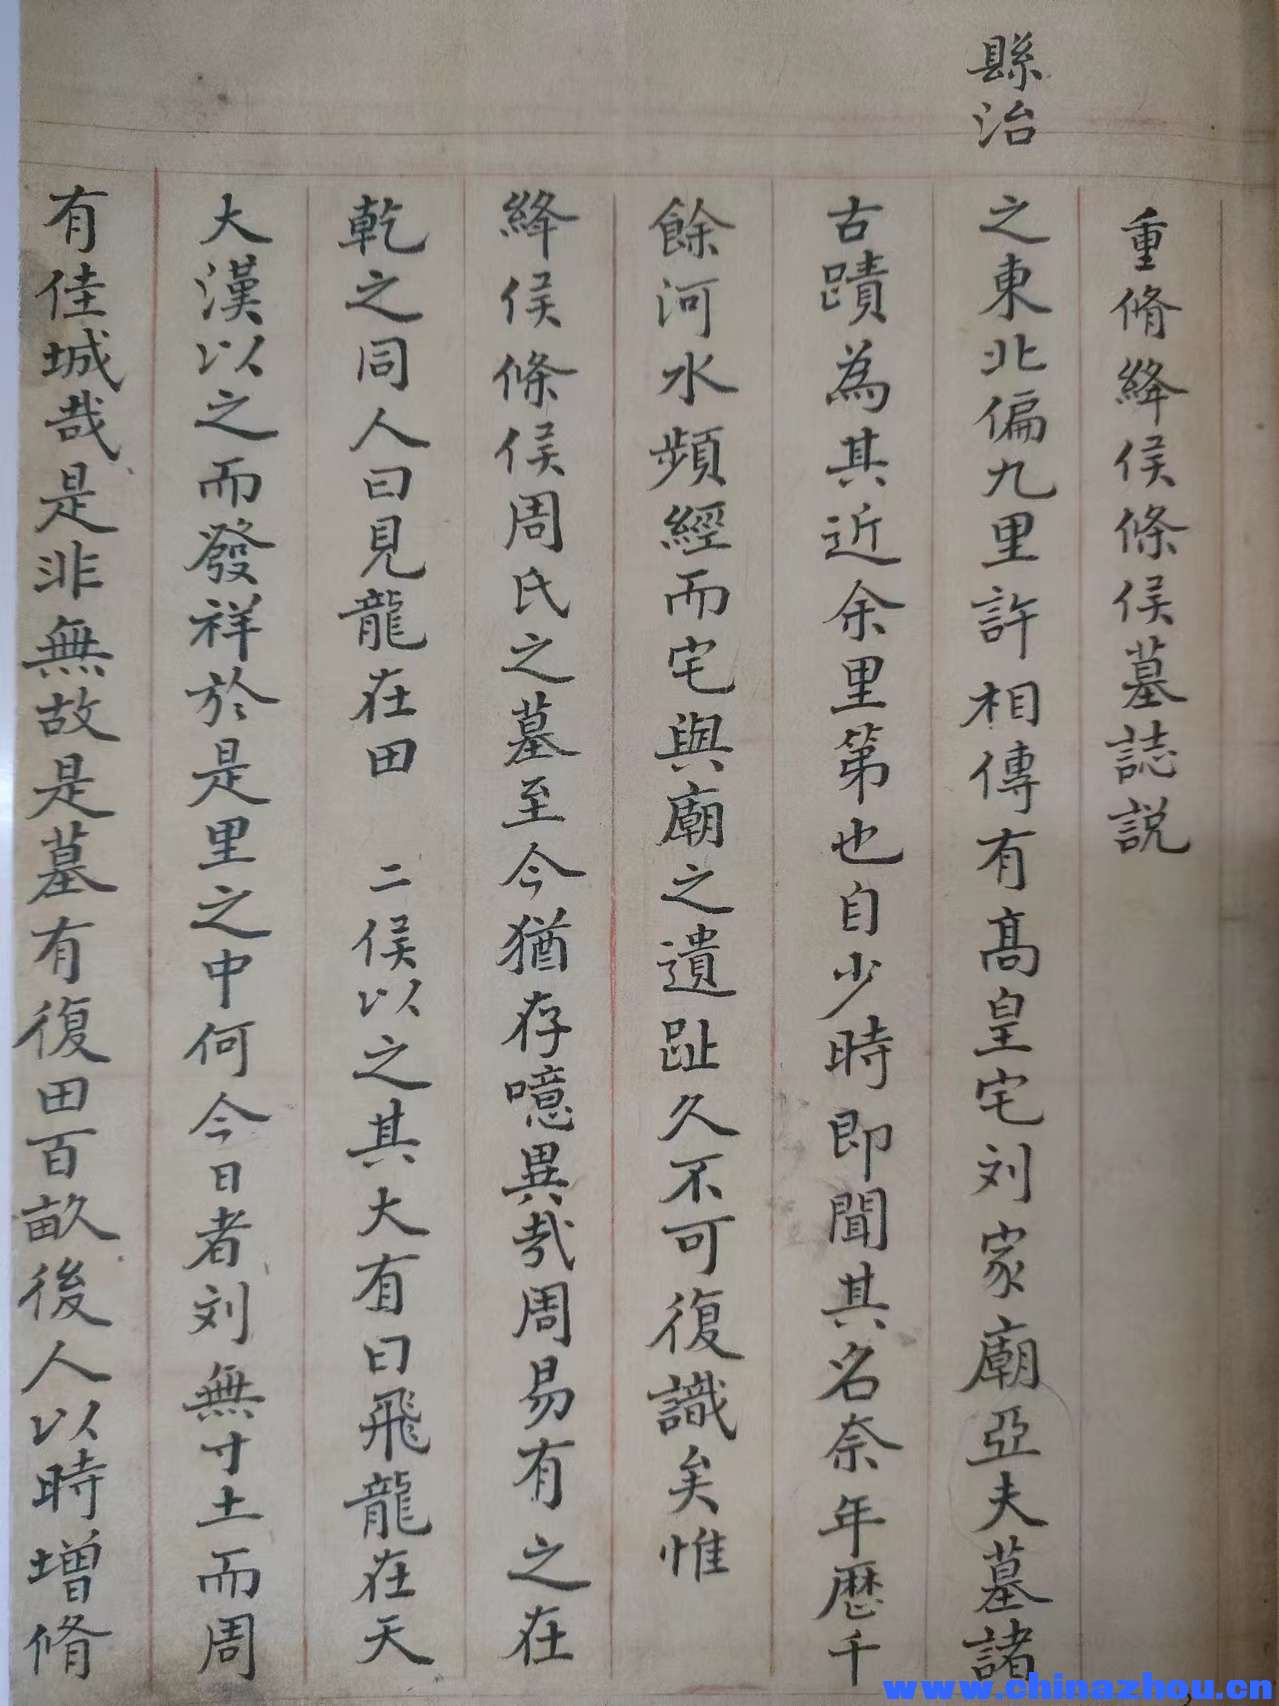 重脩絳侯條侯墓誌説
縣治之東北偏九里許相傳有髙皇宅刘家廟亞夫墓諸
古蹟為其近余里第也自少時即聞其名奈年歴千
餘河水頻經而宅與廟之遺趾久不可復識矣惟
絳侯條侯周氏之墓至今猶存噫異哉周易有之在
乾之同人曰見龍在田 二侯以之其大有曰飛龍在天
大漢以之而發祥於是里之中何今日者刘無寸土而周
有佳城哉是非無故是墓有復田百畝後人以時增脩
www.chinazhou.cn